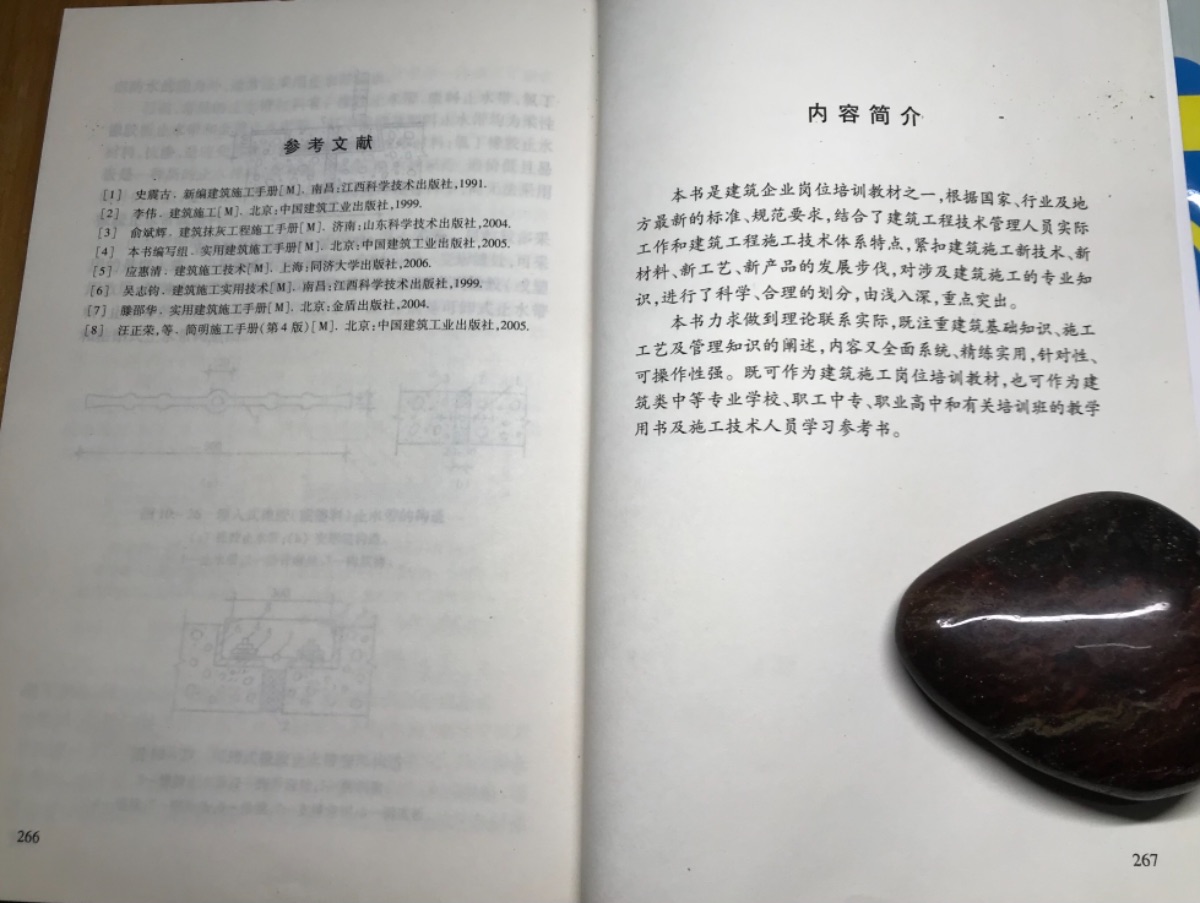 参考文献
[1] 史震古．新编建筑施工手册[M]．南昌:江西科学技术出版社,1991.
[2] 李伟．建筑施工[M]．北京:中国建筑工业出版社,1999.
[3] 俞斌辉．建筑抹灰工程施工手册[M]．济南:山东科学技术出版社,2004.
[4] 本书编写组．实用建筑施工手册[M]．北京:中国建筑工业出版社,2005.
[5] 应惠清．建筑施工技术[M]．上海:同济大学出版社,2006.
[6] 吴志钧．建筑施工实用技术[M]．南昌:江西科学技术出版社,1999.
[7] 滕邵华．实用建筑施工手册[M]．北京:金盾出版社,2004.
[8] 汪正荣,等．简明施工手册(第4版)[M]．北京:中国建筑工业出版社,2005.
266
内容简介
本书是建筑企业岗位培训教材之一,根据国家、行业及地
方最新的标准、规范要求,结合了建筑工程技术管理人员实际
工作和建筑工程施工技术体系特点,紧扣建筑施工新技术、新
材料、新工艺、新产品的发展步伐,对涉及建筑施工的专业知
识,进行了科学、合理的划分,由浅入深,重点突出。
本书力求做到理论联系实际,既注重建筑基础知识、施工
工艺及管理知识的阐述,内容又全面系统、精练实用,针对性、
可操作性强。既可作为建筑施工岗位培训教材,也可作为建
筑类中等专业学校、职工中专、职业高中和有关培训班的教学
用书及施工技术人员学习参考书。
267